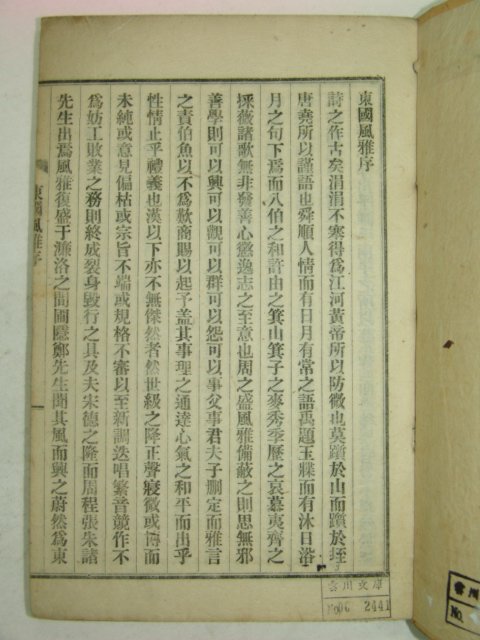 東國風雅序
詩之作古矣涓涓不寒得爲江河黃帝所以防微也莫躓於山而躓於垤
唐堯所以謹語也舜順人情而有日月有常之語禹題玉牒而有沐日浴
月之句下焉而八伯之和許由之箕山箕子之麥秀季歷之哀慕夷齊之
採薇諸歌無非發善心懲逸志之至意也周之盛風雅備蔽之則思無邪
善學則可以興可以觀可以群可以怨可以事父事君夫子刪定而雅言
之責伯魚以不爲歎商賜以起予盖其事理之通達心氣之和平而出乎
性情止乎禮義也漢以下亦不無傑然者然世級之降正聲寢微或博而
未純或意見偏枯或宗旨不端或規格不審以至新調迭唱繁音競作不
爲妨工敗業之務則終成裂身毀行之具及夫宋德之隆而周程張朱諸
先生出焉風雅復盛于濂洛之間圃隱鄭先生聞其風而興之蔚然爲東
東國風雅序
雲川文庫
No06 2441
雲川
No.